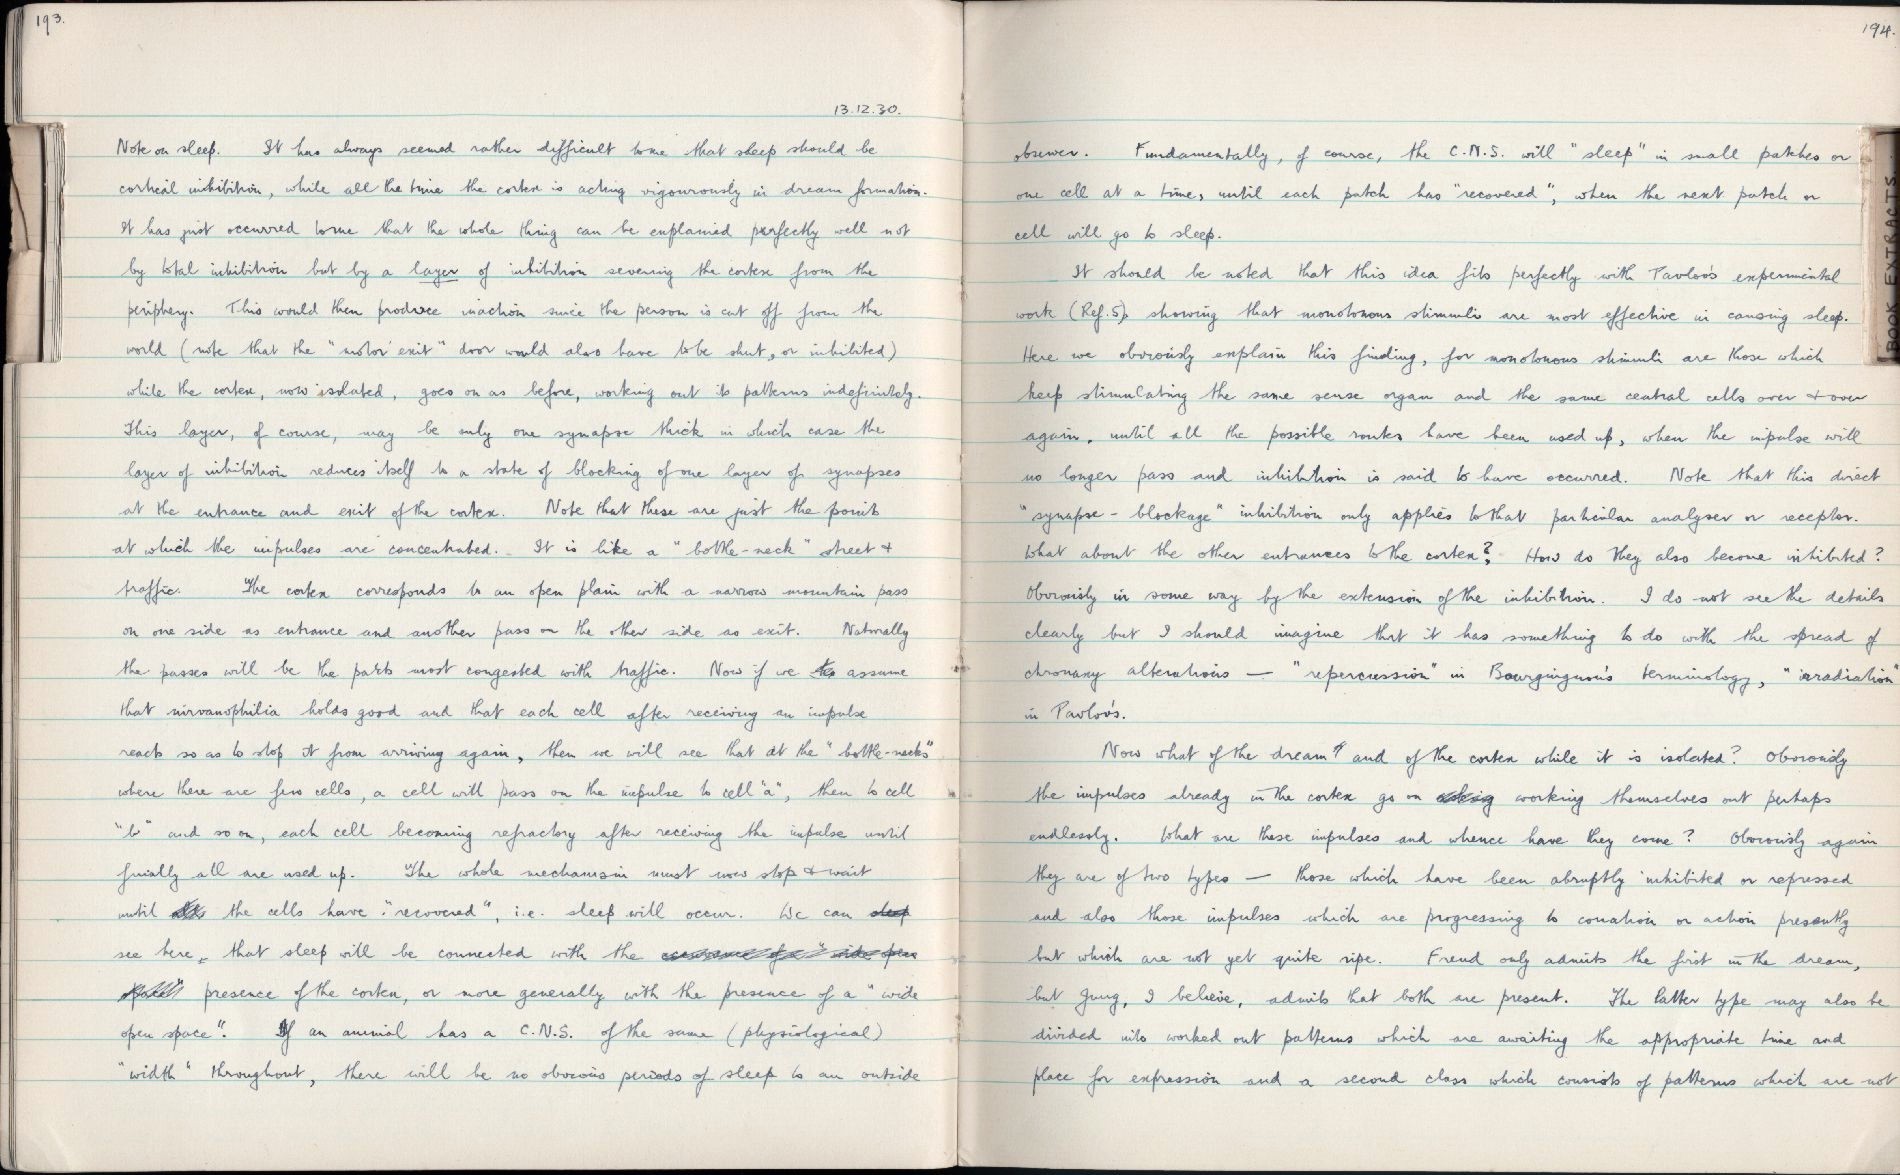 193.
13.12.30.
Note on sleep. It has always seemed rather difficult to me that sleep should be
cortical inhibition, while all the time the cortex is acting vigourously in dream formation.
It has just occurred to me that the whole thing can be explained perfectly well not
by total inhibition but by a layer of inhibition severing the cortex from the
periphery. This would then produce inaction since the person is cut off from the
world (note that the "motor exit" door would also have to be shut, or inhibited)
while the cortex, now isolated, goes on as before, working out its patterns indefinitely.
This layer, of course, may be only one synapse thick in which case the
layer of inhibition reduces itself to a state of blocking of one layer of synapses
at the entrance and exit of the cortex. Note that these are just the points
at which the impulses are concentrated. It is like a "bottle-neck" street &
traffic. The cortex corresponds to an open plain with a narrow mountain pass
on one side as entrance and another pass on the other side as exit. Naturally
the passes will be the parts most congested with traffic. Now if we assume
that nirvanophilia holds good and that each cell after receiving an impulse
reacts so as to stop it from arriving again, then we will see that at the "bottle-necks"
where there are few cells, a cell will pass on the impulse to cell "a", then to cell
"b" and so on, each cell becoming refractory after receiving the impulse until
finally all are used up. The whole mechanism must now stop & wait
until the cells have "recovered", i.e. sleep will occur. We can sleep
see here, that sleep will be connected with the "wide open
space" presence of the cortex, or more generally with the presence of a "wide
open space". If an animal has a C.N.S. of the same (physiological)
"width" throughout, there will be no obvious periods of sleep to an outside
194.
observer. Fundamentally, of course, the C.N.S. will "sleep" in small patches or
one cell at a time, until each patch has "recovered", when the next patch or
cell will go to sleep.
It should be noted that this idea fits perfectly with Pavlov's experimental
work (Ref. 5), showing that monotonous stimuli are most effective in causing sleep.
Here we obviously explain this finding, for monotonous stimuli are those which
keep stimulating the same sense organ and the same central cells over & over
again, until all the possible routes have been used up, when the impulse will
no longer pass and inhibition is said to have occurred. Note that this direct
"synapse-blockage" inhibition only applies to that particular analyser or receptor.
What about the other entrances to the cortex? How do they also become inhibited?
Obviously in some way by the extension of the inhibition. I do not see the details
clearly but I should imagine that it has something to do with the spread of
chronaxy alterations — "repercussion" in Bourguignon's terminology, "irradiation"
in Pavlov's.
Now what of the dream? and of the cortex while it is isolated? Obviously
the impulses already in the cortex go on working themselves out perhaps
endlessly. What are these impulses and whence have they come? Obviously again
they are of two types — those which have been abruptly inhibited or repressed
and also those impulses which are progressing to conation or action presently
but which are not yet quite ripe. Freud only admits the first in the dream,
but Jung, I believe, admits that both are present. The latter type may also be
divided into worked out patterns which are awaiting the appropriate time and
place for expression and a second class which consists of patterns which are not
BOOK EXTRACTS.